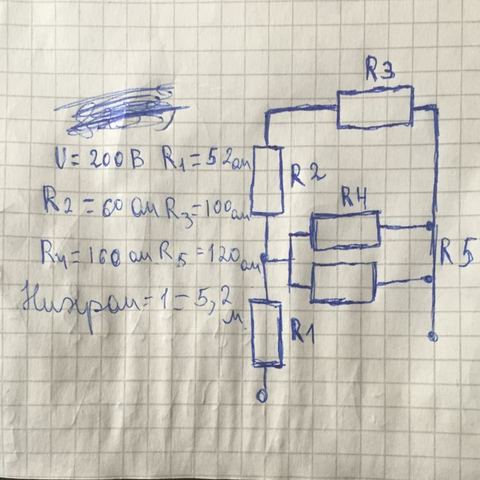 U = 200В R1 = 52ом
R2 = 60 ом R3 = 100ом
R4 = 160 ом R5 = 120ом
Нихром - l = 5,2 м.
R3
R2
R4
R5
R1